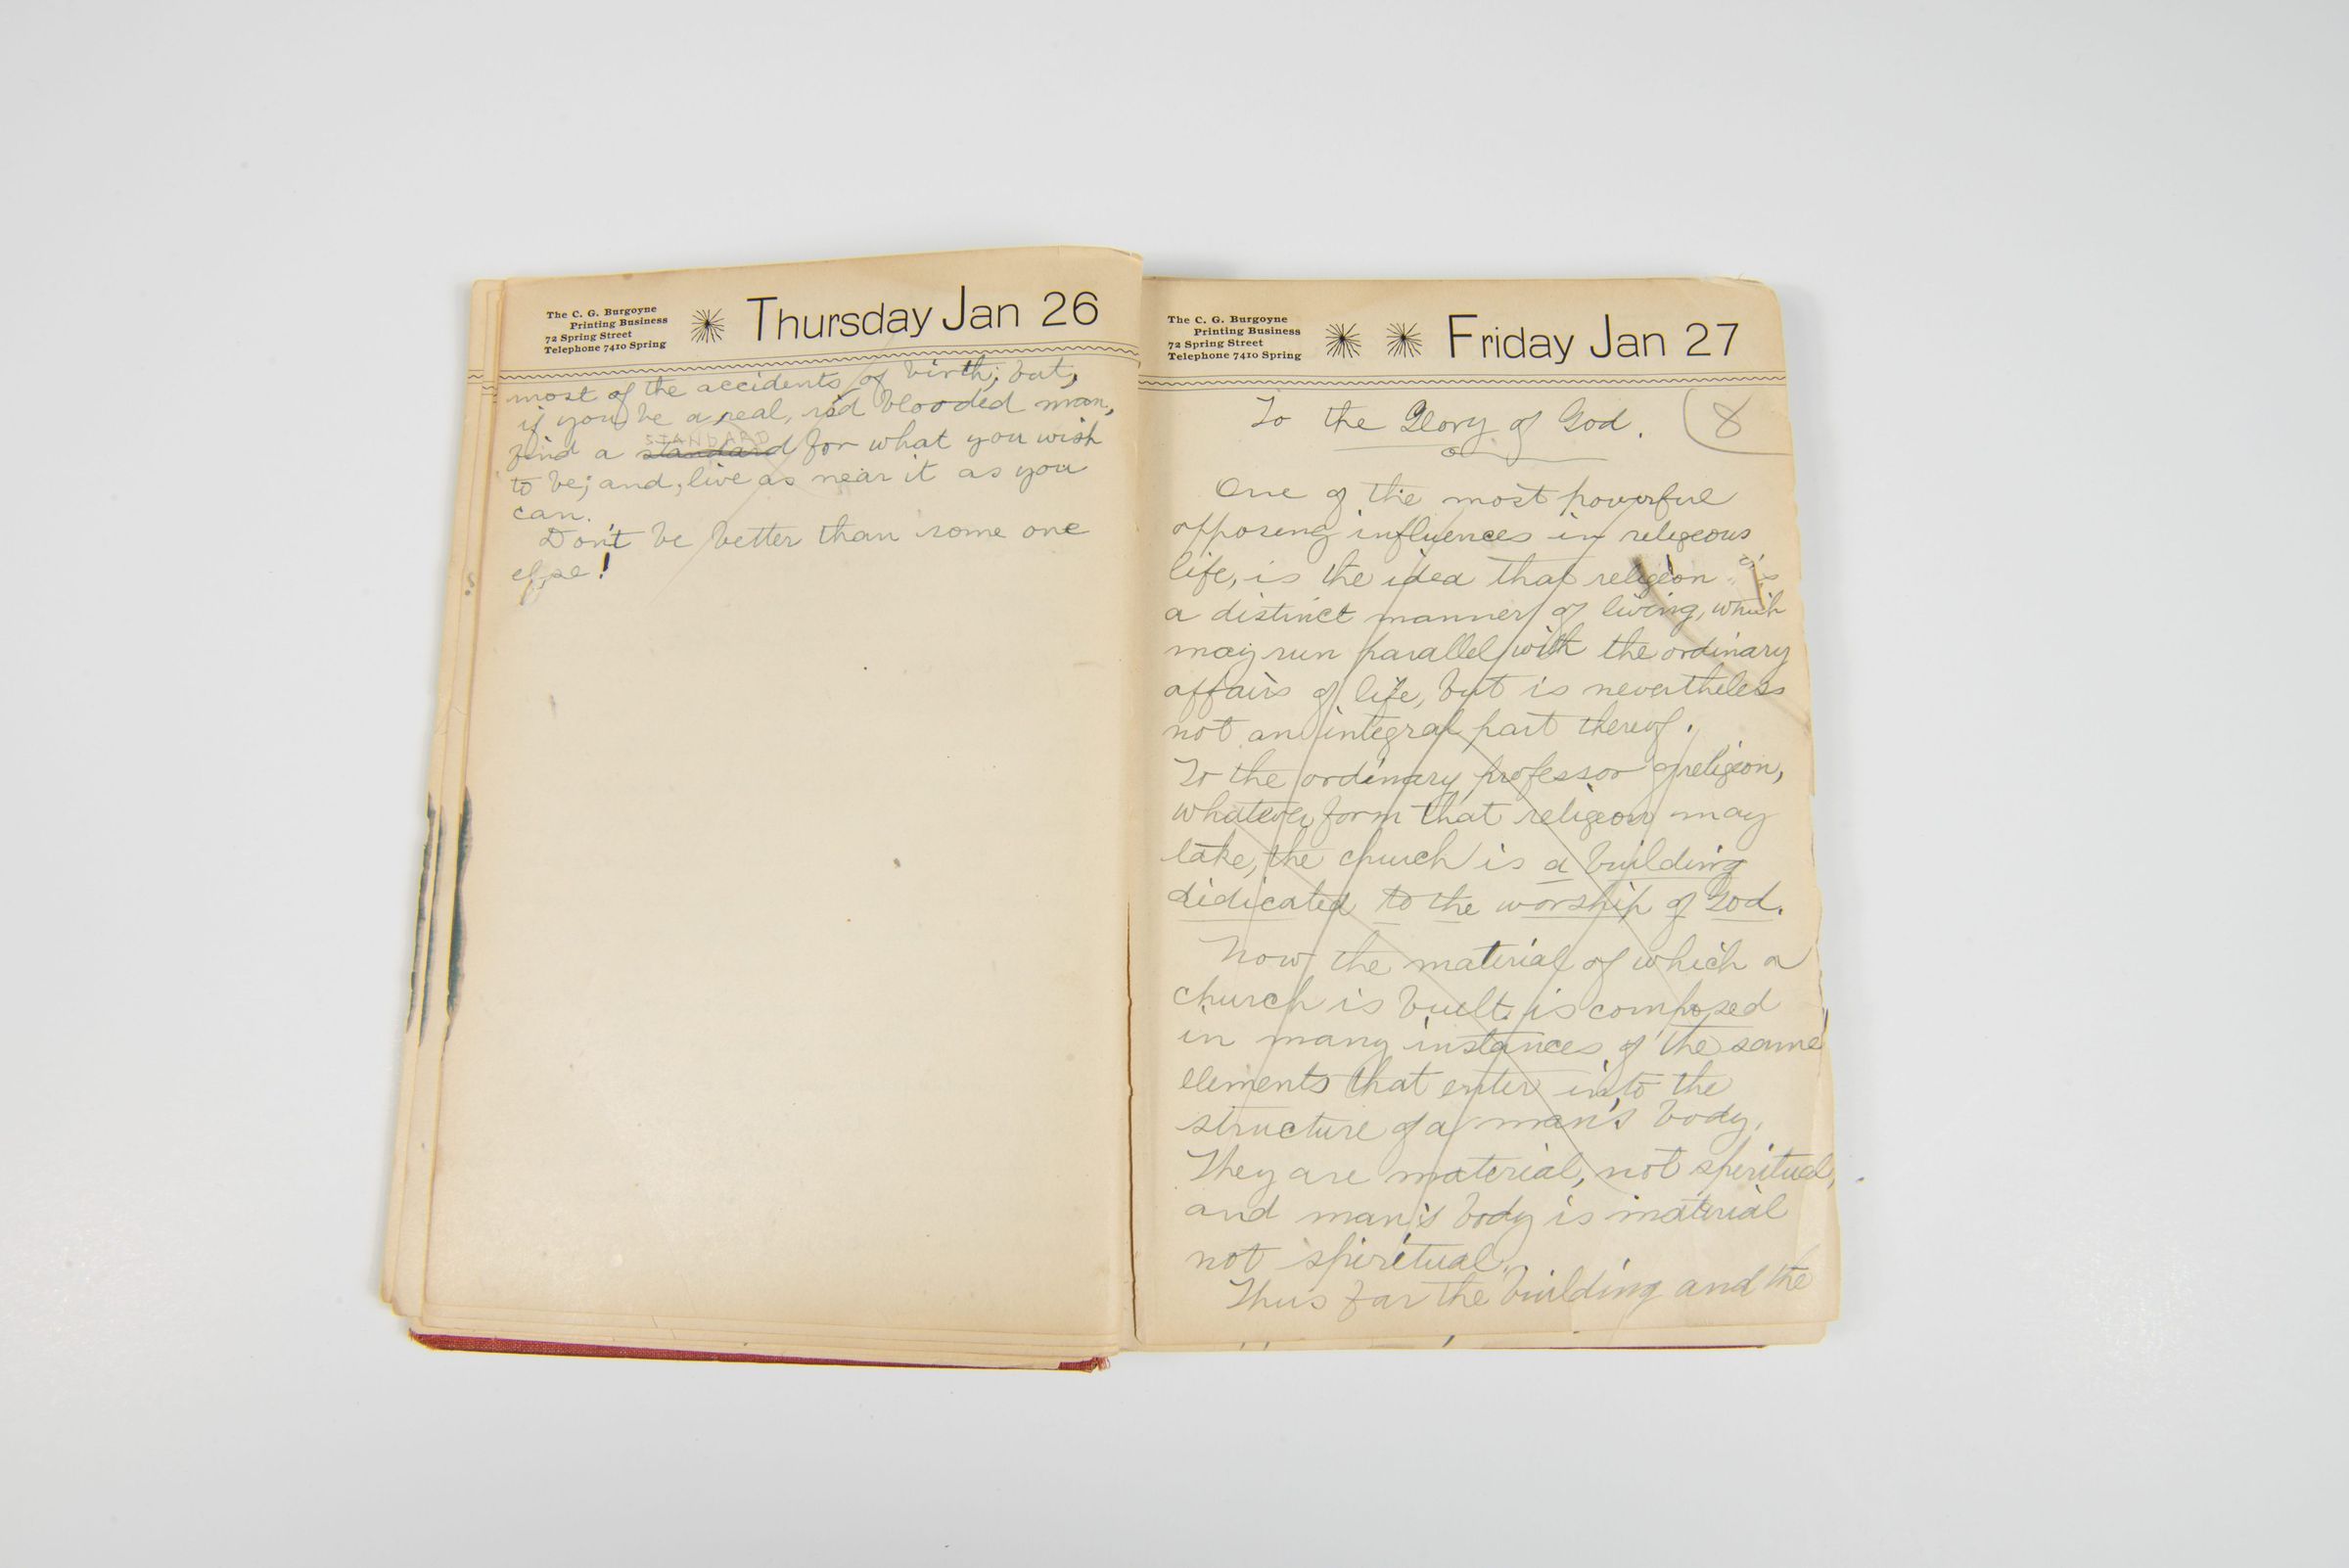 The C. G. Burgoyne
Printing Business
72 Spring Street
Telephone 7410 Spring
Thursday Jan 26
most of the accidents of birth; but,
if you be a real, red blooded man,
STANDARD
find a standard for what you wish
to be; and, live as near it as you
can.
Don't be better than some one
else!
The C. G. Burgoyne
Printing Business
72 Spring Street
Telephone 7410 Spring
Friday Jan 27
To the Glory of God.
8
One of the most powerful
opposing influences in religeous
life, is the idea that religion is
a distinct manner of living, which
may run parallel with the ordinary
affairs of life, but is nevertheless
not an integral part thereof.
To the ordinary professor of religion,
whatever form that religeon may
take, the church is a building
didicated to the worship of God.
Now the material of which a
church is built is composed
in many instances of the same
elements that enter into the
structure of a man's body.
They are material, not spiritual,
and man's body is material
not spiritual.
Thus far the building and the